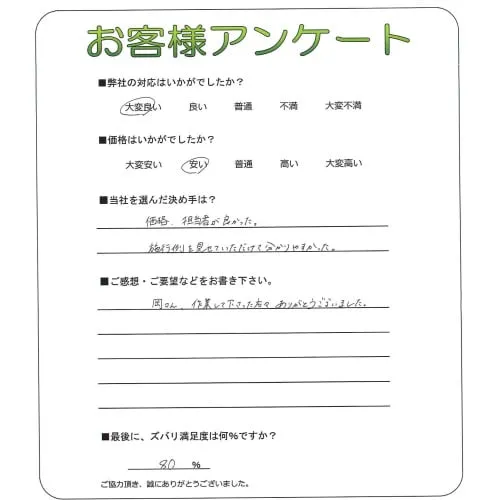 お客様アンケート
■弊社の対応はいかがでしたか？
大変良い 良い 普通 不満 大変不満
■価格はいかがでしたか？
大変安い 安い 普通 高い 大変高い
■当社を選んだ決め手は？
価格、担当者が良かった。
施行例を見せていただけて分かりやすかった。
■ご感想・ご要望などをお書き下さい。
岡さん、作業して下さった方々 ありがとうございました。
■最後に、ズバリ満足度は何％ですか？
80 ％
ご協力頂き、誠にありがとうございました。